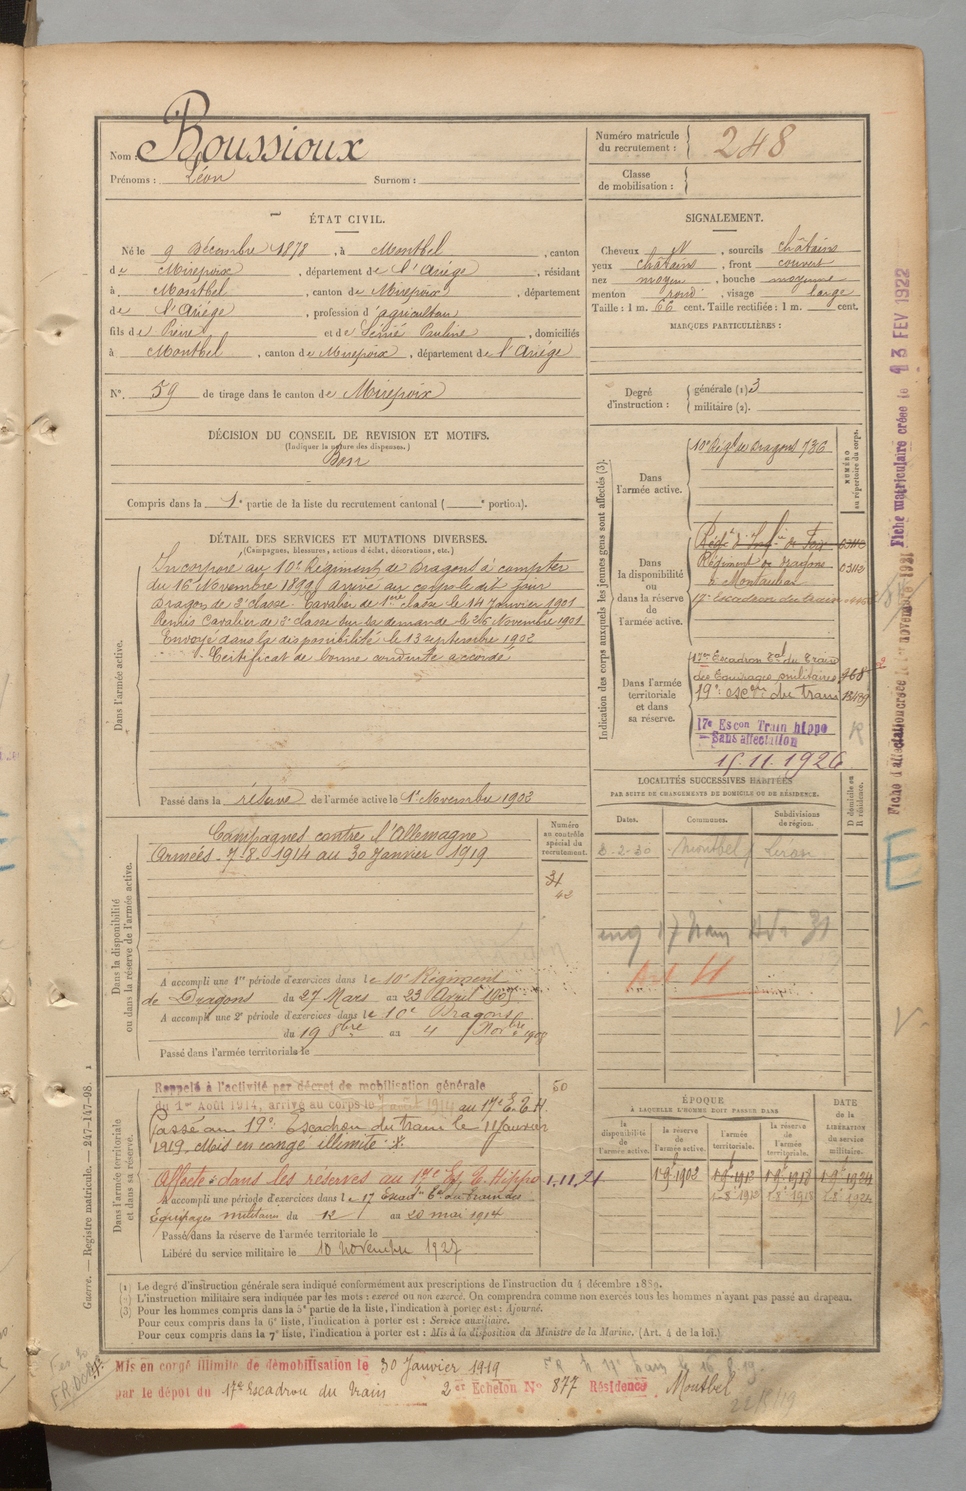 Nom : Boussioux
Prénoms : Léon Surnom :
Numéro matricule du recrutement : 248
Classe de mobilisation :
ÉTAT CIVIL.
Né le 9 Décembre 1878, à Montbel, canton
de Mirepoix, département de l'Ariège, résidant
à Montbel, canton de Mirepoix, département
de l'Ariège, profession d'agriculteur
fils de Pierre et de Pauline, domiciliés
à Montbel, canton de Mirepoix, département de l'Ariège
N°. 59 de tirage dans le canton de Mirepoix
SIGNALEMENT.
Cheveux N, sourcils châtains
yeux châtains, front couvert
nez moyen, bouche moyenne
menton rond, visage large
Taille : 1 m. 66 cent. Taille rectifiée : 1 m. cent.
MARQUES PARTICULIÈRES :
Degré d'instruction : générale (1) 3
militaire (2).
DÉCISION DU CONSEIL DE REVISION ET MOTIFS.
(Indiquer la nature des dispenses.)
Bon
Compris dans la 1e partie de la liste du recrutement cantonal ( e portion).
DÉTAIL DES SERVICES ET MUTATIONS DIVERSES.
(Campagnes, blessures, actions d'éclat, décorations, etc.)
Dans l'armée active.
Incorporé au 10e Régiment de Dragons à compter
du 16 Novembre 1899, arrivé au corps le dit jour
Dragon de 2e classe. Cavalier de 1ère classe le 14 Janvier 1901
Remis Cavalier de 2e classe sur sa demande le 26 Novembre 1901
Envoyé dans la disponibilité le 13 septembre 1902
Certificat de bonne conduite accordé
Passé dans la réserve de l'armée active le 1er Novembre 1902
Indication des corps auxquels les jeunes gens sont affectés (3).
NUMÉRO au répertoire du corps.
Dans l'armée active.
10e Régt de Dragons 736
Dans la disponibilité ou dans la réserve de l'armée active.
Régt d'Infie de Foix
Régiment de dragons
à Montauban
17e Escadron du train
Dans l'armée territoriale et dans sa réserve.
17e Escadron Tal du Train
des Equipages militaires
19e escon du train
17e Escon Train hippo
Sans affectation
15.11.1926
LOCALITÉS SUCCESSIVES HABITÉES
PAR SUITE DE CHANGEMENTS DE DOMICILE OU DE RÉSIDENCE.
Dates. Communes. Subdivisions de région. D domicile ou R résidence.
Montbel
17 Train
Art
Dans la disponibilité ou dans la réserve de l'armée active.
Numéro au contrôle spécial du recrutement.
Campagnes contre l'Allemagne
Armées 7.8.1914 au 30 Janvier 1919
A accompli une 1re période d'exercices dans le 10e Régiment
de Dragons du 27 Mars au 23 Avril 1905
A accompli une 2e période d'exercices dans le 10e Dragons
du 19 8bre au 4 Novbre 1908
Passé dans l'armée territoriale le
Dans l'armée territoriale et dans sa réserve.
Rappelé à l'activité par décret de mobilisation générale 50
du 1er Août 1914, arrivé au corps le 7 août 1914 au 17e E.T.H.
Passé au 19e Escadron du train le 11 janvier
1919. Mis en congé illimité
Affecté dans les réserves au 17e Es. T. Hippo 1.11.21
A accompli une période d'exercices dans le 17 Escadn Tal du train des
Equipages militaires du 12 au 20 mai 1914
Passé dans la réserve de l'armée territoriale le
Libéré du service militaire le 10 novembre 1927
ÉPOQUE
À LAQUELLE L'HOMME DOIT PASSER DANS
la disponibilité de l'armée active. la réserve de l'armée active. l'armée territoriale. la réserve de l'armée territoriale.
DATE de la LIBÉRATION du service militaire.
1 9e 1902 1 9e 1912 1 9e 1918 1 9e 1924
(1) Le degré d'instruction générale sera indiqué conformément aux prescriptions de l'instruction du 4 décembre 1889.
(2) L'instruction militaire sera indiquée par les mots : exercé ou non exercé. On comprendra comme non exercés tous les hommes n'ayant pas passé au drapeau.
(3) Pour les hommes compris dans la 5e partie de la liste, l'indication à porter est : Ajourné.
Pour ceux compris dans la 6e liste, l'indication à porter est : Service auxiliaire.
Pour ceux compris dans la 7e liste, l'indication à porter est : Mis à la disposition du Ministre de la Marine. (Art. 4 de la loi.)
Mis en congé illimité de démobilisation le 30 Janvier 1919
par le dépôt du 17e Escadron du Train 2e Echelon No 877 Résidence Montbel
Guerre. — Registre matricule. — 247-147-98. 1
Fiche d'affectation créée le 1er novembre 1921 Fiche matriculaire créée le 13 FEV 1922